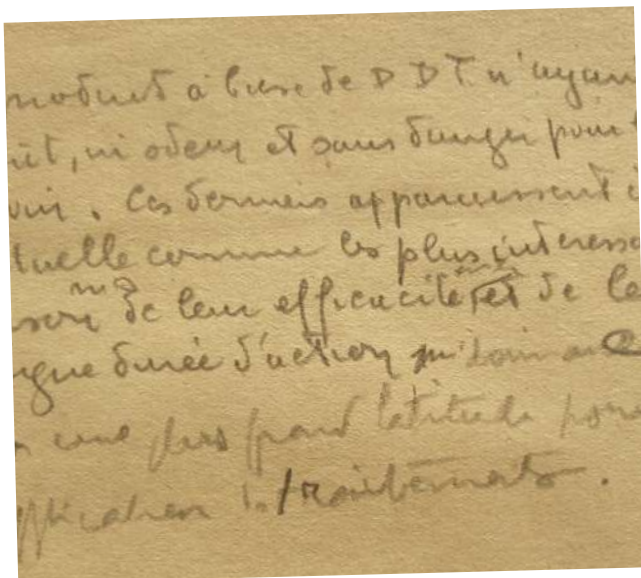 produit à base de D D T n'ayan
ût, ni odeur et sans danger pour
. Ces derniers apparaissent
tuelle comme les plus interessa
de leur efficacité et de le
gue durée d'action
une plus grand latitude pour
pplication traitements.